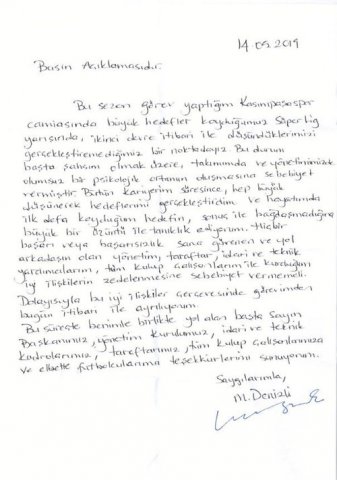 14.05.2019
Basın Açıklamasıdır.
Bu sezon görev yaptığım Kasımpaşaspor
camiasında büyük hedefler koyduğumuz Süper Lig
yarışında, ikinci devre itibarı ile düşündüklerimizi
gerçekleştiremediğimiz bir noktadayız. Bu durum
başta şahsım olmak üzere, takımımda ve yönetimimizde
olumsuz bir psikolojik ortamın oluşmasına sebebiyet
vermiştir. Bütün kariyerim süresince, hep büyük
düşünerek hedeflerimi gerçekleştirdim ve hayatımda
ilk defa koyduğum hedefin, sonuç ile bağdaşmadığına
büyük bir üzüntü ile tanıklık ediyorum. Hiçbir
başarı veya başarısızlık sana güvenen ve yol
arkadaşın olan yönetim, taraftar, idari ve teknik
yardımcılarım, tüm kulüp çalışanlarım ile kurduğum
iyi ilişkilerin zedelenmesine sebebiyet vermemeli.
Dolayısıyla bu iyi ilişkiler çerçevesinde görevimden
bugün itibarı ile ayrılıyorum.
Bu süreçte benimle birlikte yol alan başta Sayın
Başkanımız, yönetim kurulumuz, idari ve teknik
kadrolarımız, taraftarımız, tüm kulüp çalışanlarımıza
ve elbette futbolcularıma teşekkürlerimi sunuyorum.
Saygılarımla,
M. Denizli